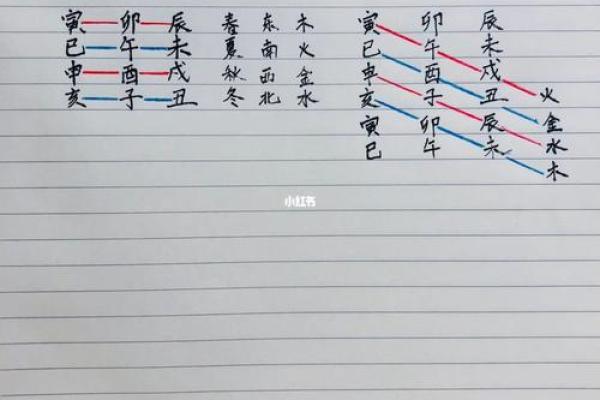 寅 卯 辰 春 东 木
巳 午 未 夏 南 火
申 酉 戌 秋 西 金
亥 子 丑 冬 北 水
寅 卯 辰
巳 午 未
申 酉 戌 火
亥 子 丑 金
寅 卯 辰 水
巳 午 未 木
小红书